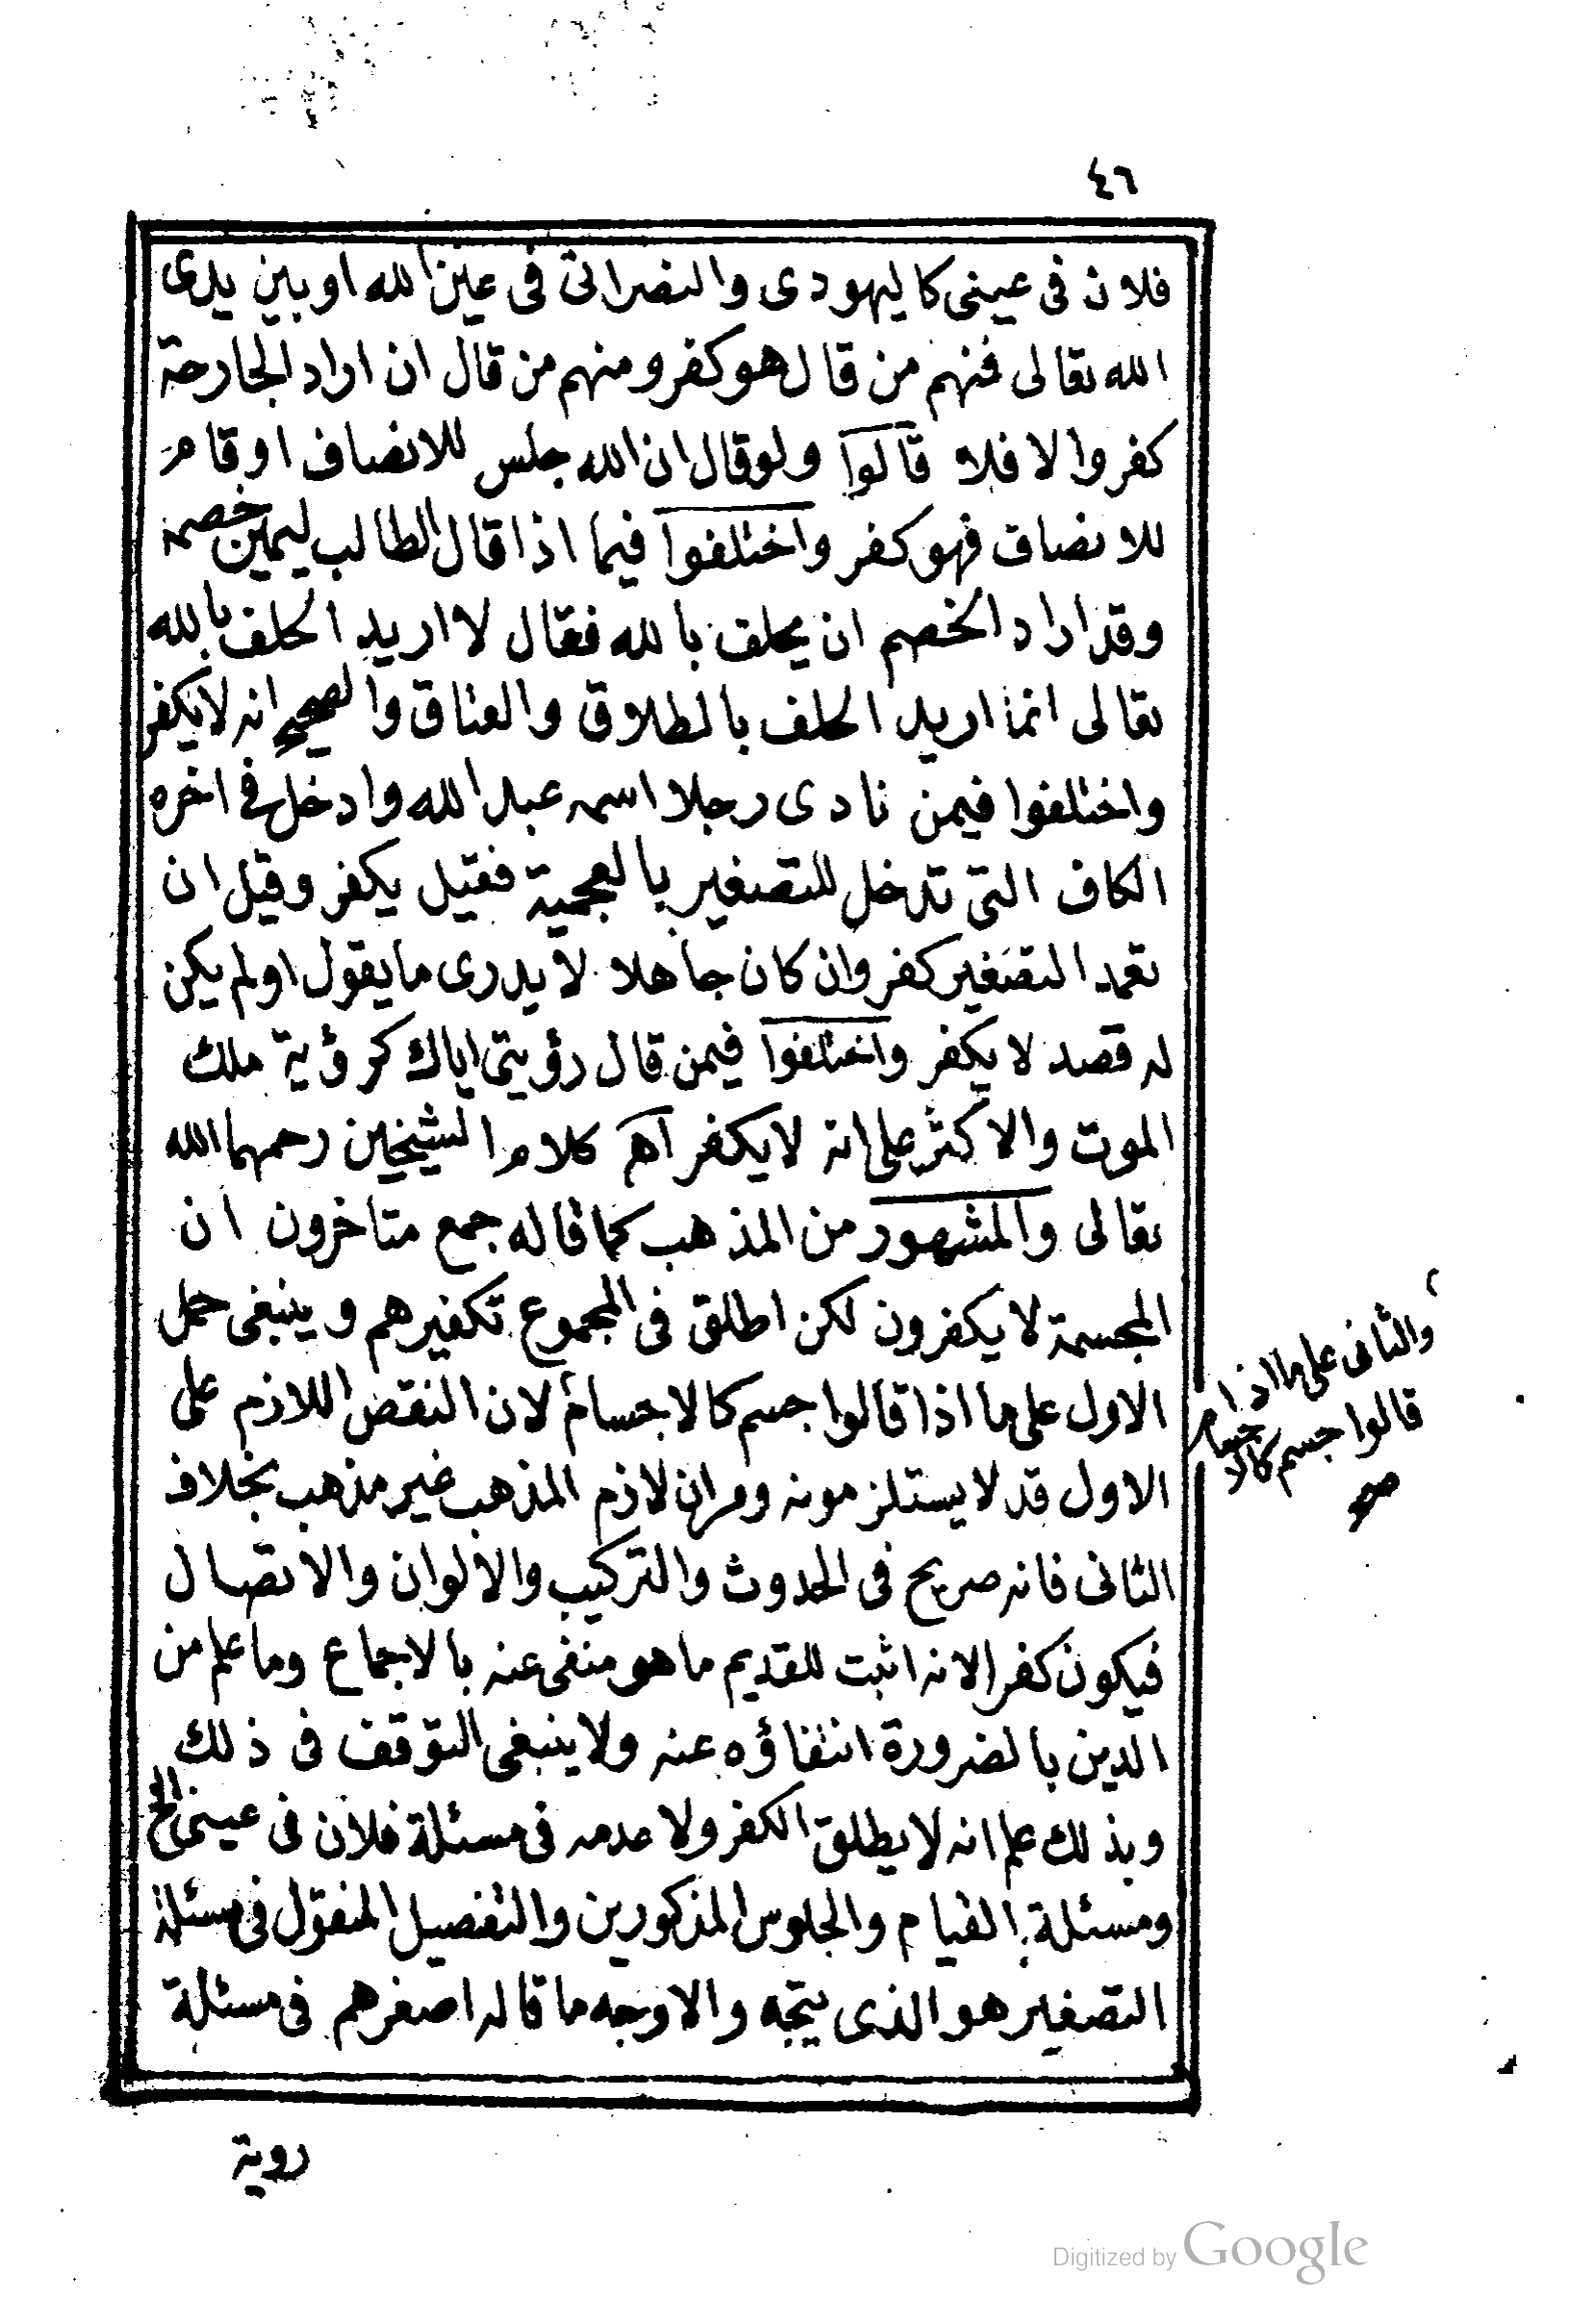 ٤٦
فلان فى عينى كاليهودى والنصرانى فى عين الله او بين يدى
الله تعالى فمنهم من قال هو كفر ومنهم من قال ان اراد الجارحة
كفر والا فلا قالوا ولو قال ان الله جلس للانصاف او قام
للانصاف فهو كفر واختلفوا فيما اذا قال الطالب ليمين خصمه
وقد اراد الخصم ان يحلف بالله فقال لا اريد الحلف بالله
تعالى انما اريد الحلف بالطلاق والعتاق والصحيح انه لا يكفر
واختلفوا فيمن نادى رجلا اسمه عبد الله وادخل فى اخره
الكاف التى تدخل للتصغير بالعجمية فقيل يكفر وقيل ان
تعمد التصغير كفر وان كان جاهلا لا يدرى ما يقول او لم يكن
له قصد لا يكفر واختلفوا فيمن قال رؤيتى اياك كرؤية ملك
الموت والاكثر على انه لا يكفر اهـ كلام الشيخين رحمهما الله
تعالى والمشهور من المذهب كما قاله جمع متاخرون ان
المجسمة لا يكفرون لكن اطلق فى المجموع تكفيرهم وينبغى حمل
الاول على ما اذا قالوا جسم كالاجسام لان النقص اللازم على
الاول قد لا يستلزمونه ومر ان لازم المذهب غير مذهب بخلاف
الثانى فانه صريح فى الحدوث والتركيب والالوان والاتصال
فيكون كفرا لانه اثبت للقديم ما هو منفى عنه بالاجماع وما علم من
الدين بالضرورة انتفاؤه عنه ولا ينبغى التوقف فى ذلك
وبذلك علم انه لا يطلق الكفر ولا عدمه فى مسئلة فلان فى عينى الخ
ومسئلة القيام والجلوس المذكورين والتفصيل المنقول فى مسئلة
التصغير هو الذى يتجه والاوجه ما قاله اصغرهم فى مسئلة
والثانى على ما اذا
قالوا جسم كالاجسام
صح
روية
Digitized by Google